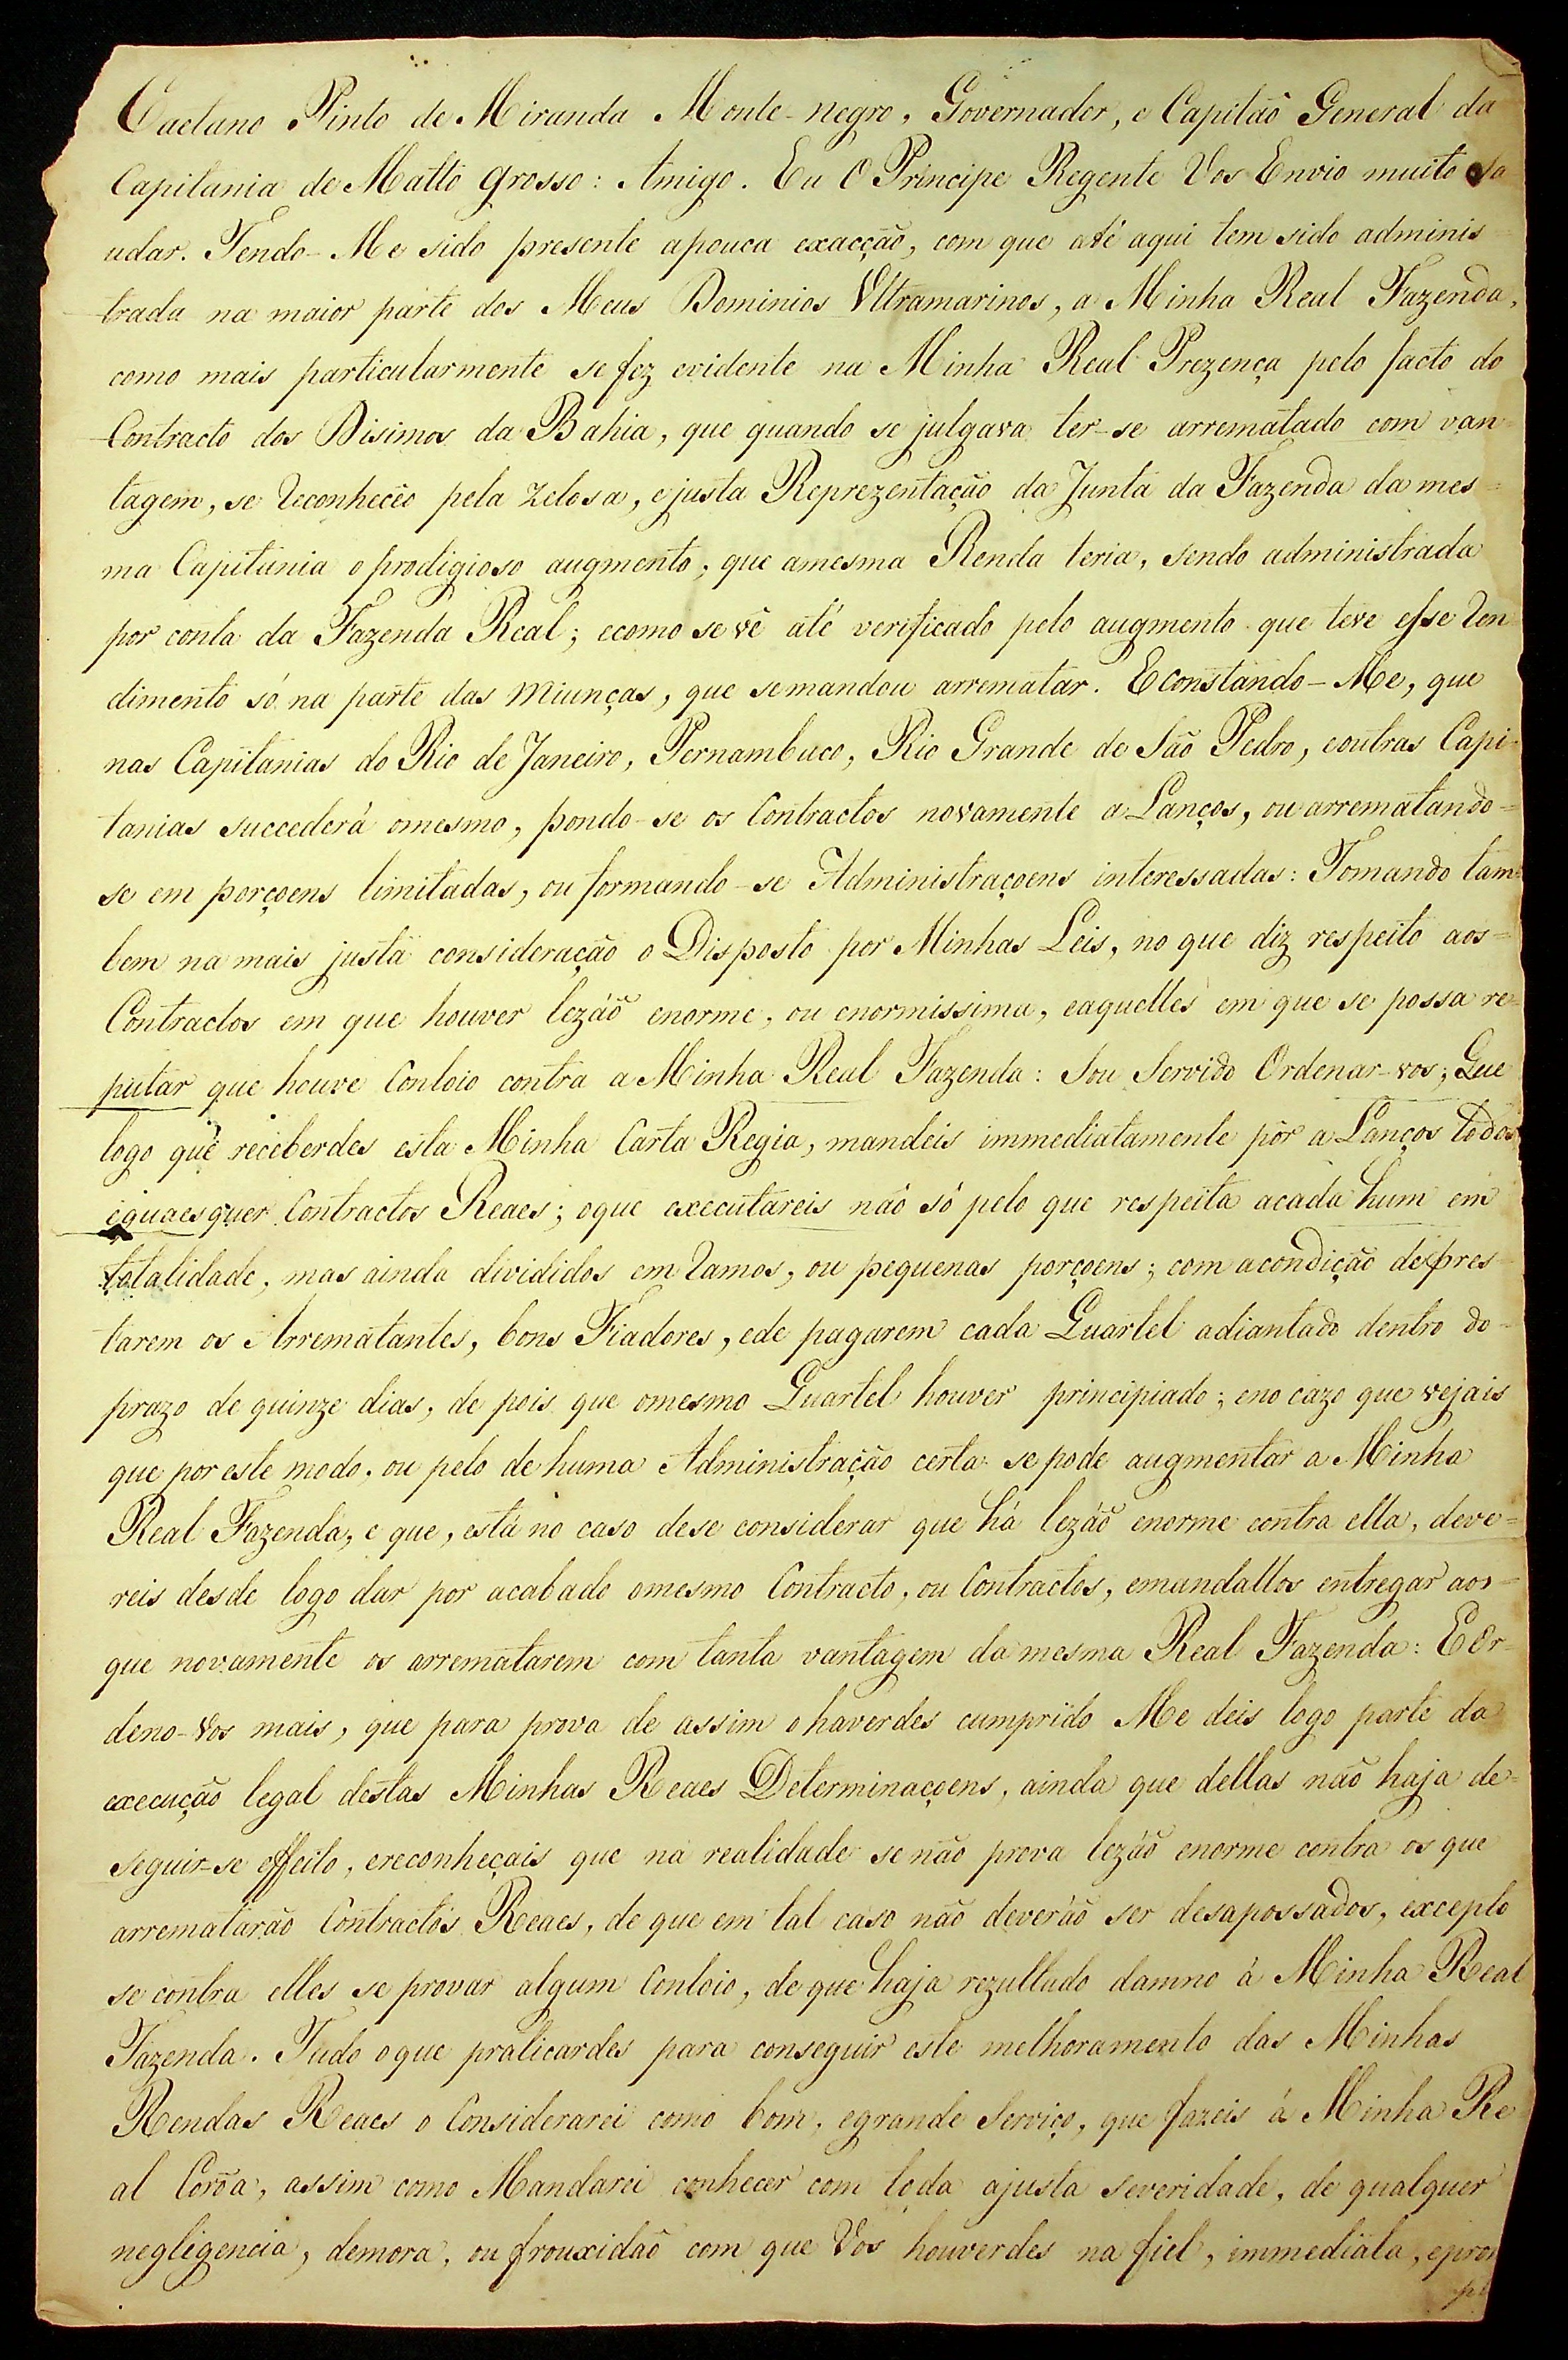 Caetano Pinto de Miranda Monte-negro, Governador, e Capitaõ General da
Capitania de Matto grosso: Amigo. Eu O Principe Regente Vos Envio muito sa
udar. Tendo-Me sido presente apouca exacção, com que até aqui tem sido adminis-
trada na maior parte dos Meus Dominios Ultramarinos, a Minha Real Fazenda,
como mais particularmente se fez evidente na Minha Real Prezença pelo facto do
Contracto dos Disimos da Bahia, que quando se julgava ter-se arrematado com van=
tagem, se reconhecêo pela zelosa, ejusta Reprezentação da Junta da Fazenda da mes=
ma Capitania o prodigioso augmento, que amesma Renda teria, sendo administrada
por conta da Fazenda Real; ecomo se vê até verificado pelo augmento que teve esse ren
dimento só na parte das miunças, que semandou arrematar. Econstando-Me, que
nas Capitanias do Rio de Janeiro, Pernambuco, Rio Grande de São Pedro, eoutras Capi-
tanias succederá omesmo, pondo-se os Contractos novamente a Lanços, ou arrematando=
se em porçoens limitadas, ou formando-se Administraçoens interessadas: Tomando tam=
bem na mais justa consideração o Disposto por Minhas Leis, no que diz respeito aos=
Contractos em que houver lezáõ enorme, ou enormissima, eaquelles em que se possa re=
putar que houve Conloio contra a Minha Real Fazenda: Sou Servido Ordenar-vos; Que
logo que receberdes esta Minha Carta Regia, mandeis immediatamente pôr a Lanços todos,
equaesquer Contractos Reaes; oque executareis naõ só pelo que respeita acada hum em
totalidade, mas ainda divididos em ramos, ou pequenas porçoens; com acondição de pres-
tarem os Arrematantes, bons Fiadores, ede pagarem cada Quartel adiantado dentro do-
prazo de quinze dias, de pois que omesmo Quartel houver principiado; eno cazo que vejais
que por este modo, ou pelo de huma Administração certa se pode augmentar a Minha
Real Fazenda, e que, está no caso dese considerar que há lezáõ enorme contra ella, deve=
reis desde logo dar por acabado omesmo Contracto, ou Contractos, emandallos entregar aos=
que novamente os arrematarem com tanta vantagem da mesma Real Fazenda: E Or-
deno-Vos mais, que para prova de assim o haverdes cumprido Me deis logo parte da
execução legal destas Minhas Reaes Determinaçoens, ainda que dellas não haja de=
seguir-se effeito, ereconheçais que na realidade se não prova lezáõ enorme contra os que
arrematárão Contractos Reaes, de que em tal caso não deveráõ ser desapossados, excepto
se contra elles se provar algum Conloio, de que haja rezultado damno á Minha Real
Fazenda. Tudo oque praticardes para conseguir este melhoramento das Minhas
Rendas Reaes o Considerarei como bom, egrande Serviço, que fazeis á Minha Re
al Corôa, assim como Mandarei conhecer com toda ajusta severidade, de qualquer
negligencia, demora, ou frouxidaõ com que Vos houverdes na fiel, immediata, epron